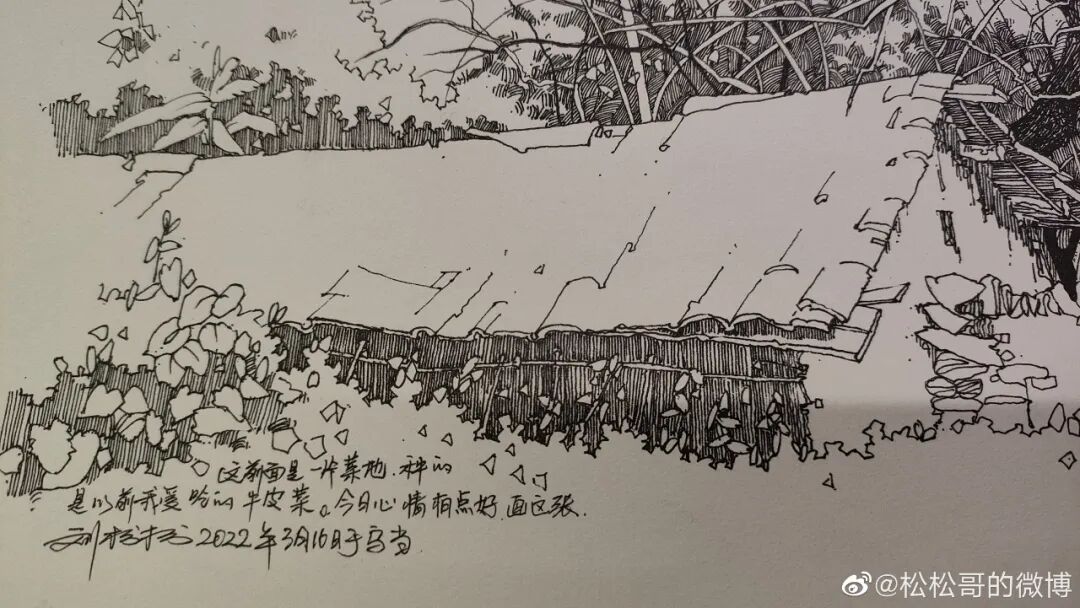 (这前面是一片菜地.种的
是以前我爱吃的牛皮菜。今日心情相点好,画这张.
刘松松2022年3月16日于乌当
@松松哥的微博